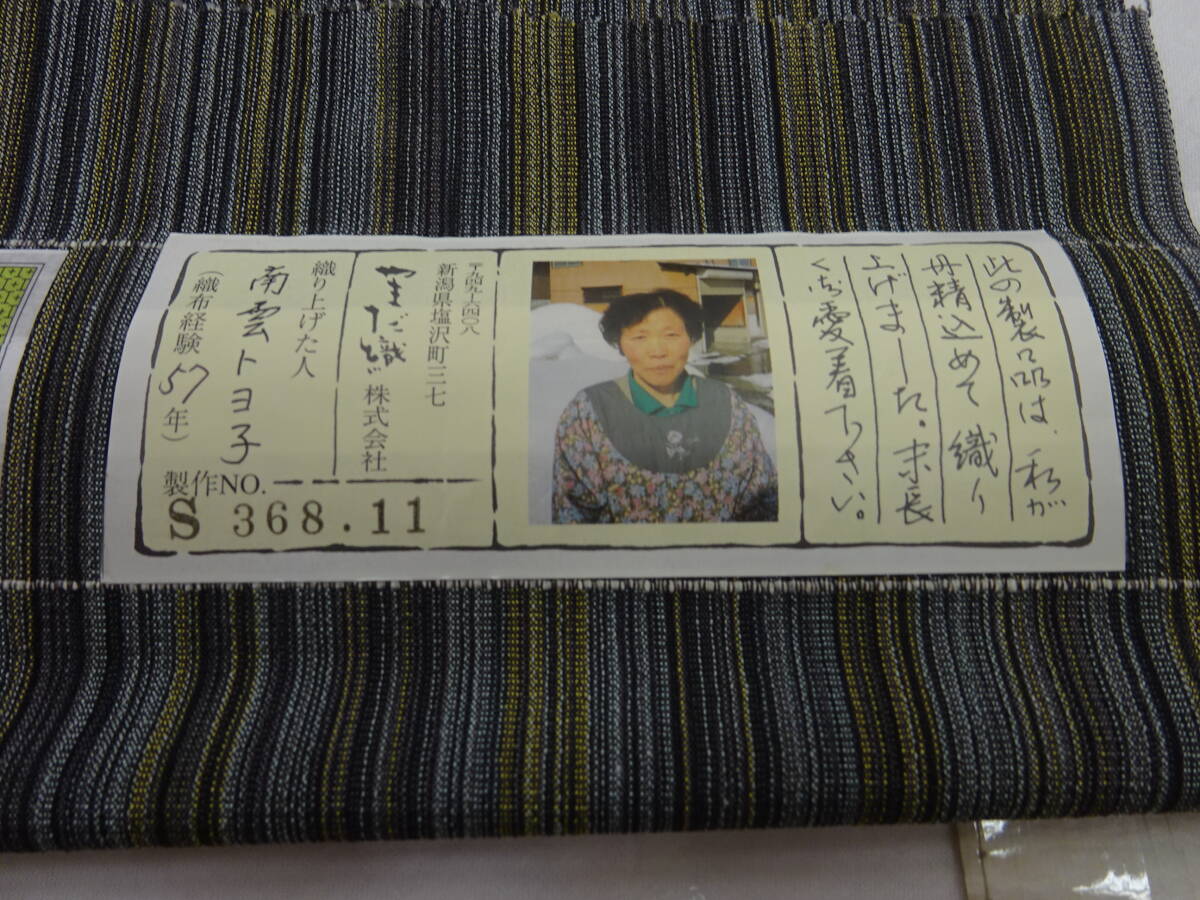 此の製品は、私が
丹精込めて織り
上げました。末長
くご愛着下さい。
〒九四九-六四〇八
新潟県塩沢町三七
やまだ織 株式会社
織り上げた人
南雲トヨ子
(織布経験 57年)
製作NO.
S 368.11